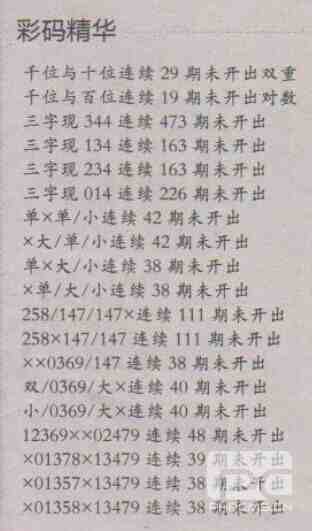 彩码精华
千位与十位连续 29 期未开出双重
千位与百位连续 19 期未开出对数
三字现 344 连续 473 期未开出
三字现 134 连续 163 期未开出
三字现 234 连续 163 期未开出
三字现 014 连续 226 期未开出
单×单/小连续 42 期未开出
×大/单/小连续 42 期未开出
单×大/小连续 38 期未开出
×单/大/小连续 38 期未开出
258/147/147×连续 111 期未开出
258×147/147 连续 111 期未开出
××0369/147 连续 38 期未开出
双/0369/大×连续 40 期未开出
小/0369/大×连续 40 期未开出
12369××02479 连续 48 期未开出
×01378×13479 连续 39 期未开出
×01357×13479 连续 38 期未开出
×01358×13479 连续 38 期未开出